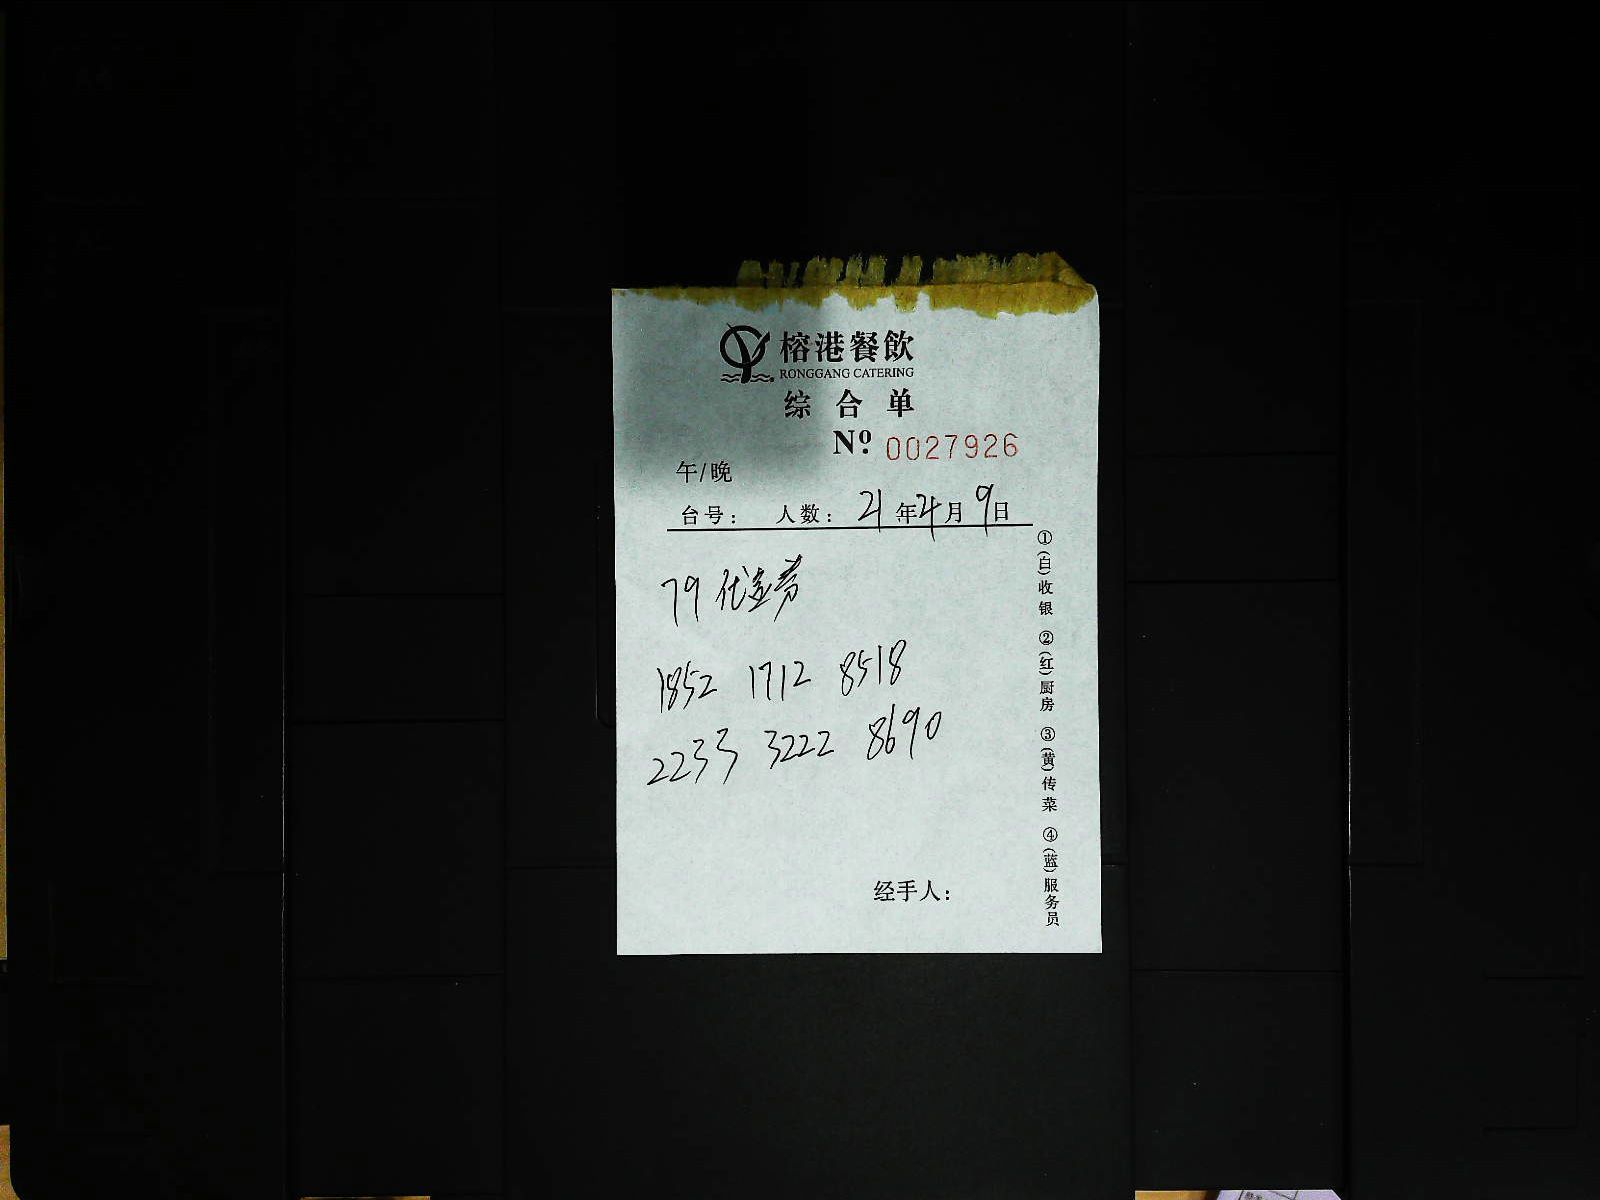 榕港餐飲
RONGGANG CATERING
综合单
Nº: 0027926
午/晚
台号： 人数： 21年4月9日
79代金券
1852 1712 8518
2233 3222 8690
经手人：
①(自)收银 ②(红)厨房 ③(黄)传菜 ④(蓝)服务员